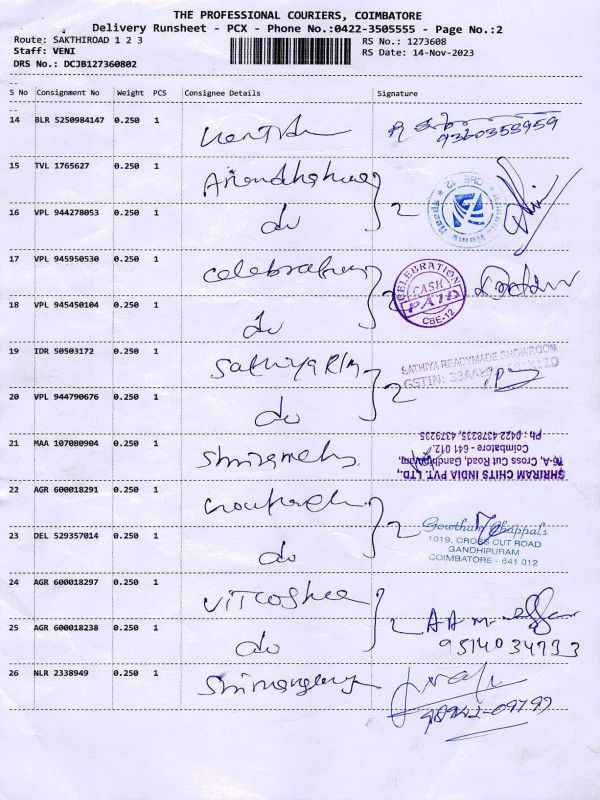 THE PROFESSIONAL COURIERS, COIMBATORE
Delivery Runsheet - PCX - Phone No.:0422-3505555 - Page No.:2
Route: SAKTHIROAD 1 2 3
RS No.: 1273608
Staff: VENI
RS Date: 14-Nov-2023
DRS No.: DCJB127360802
S No Consignment No Weight PCS Consignee Details Signature
14 BLR 5250984147 0.250 1
9360358959
15 TVL 1765627 0.250 1
16 VPL 944278053 0.250 1 do 2
17 VPL 945950530 0.250 1 celebration
CELEBRATION
CASH
PAID
CBE-12
18 VPL 945450104 0.250 1 do 2
19 IDR 50503172 0.250 1 Sathiya R/M
SATHIYA READYMADE SHOWROOM
GSTIN:
20 VPL 944790676 0.250 1 do 2
21 MAA 107080904 0.250 1
SHRIRAM CHITS INDIA PVT. LTD.,
Cross Cut Road, Gandhipuram,
Coimbatore - 641 012.
Ph : 0422 4378235, 4379235
22 AGR 600018291 0.250 1
Gowtham Chappals
1019, CROSS CUT ROAD
GANDHIPURAM
COIMBATORE - 641 012
23 DEL 529357014 0.250 1 do 2
24 AGR 600018297 0.250 1
25 AGR 600018238 0.250 1 do 2
9514034733
26 NLR 2338949 0.250 1
98942-09797